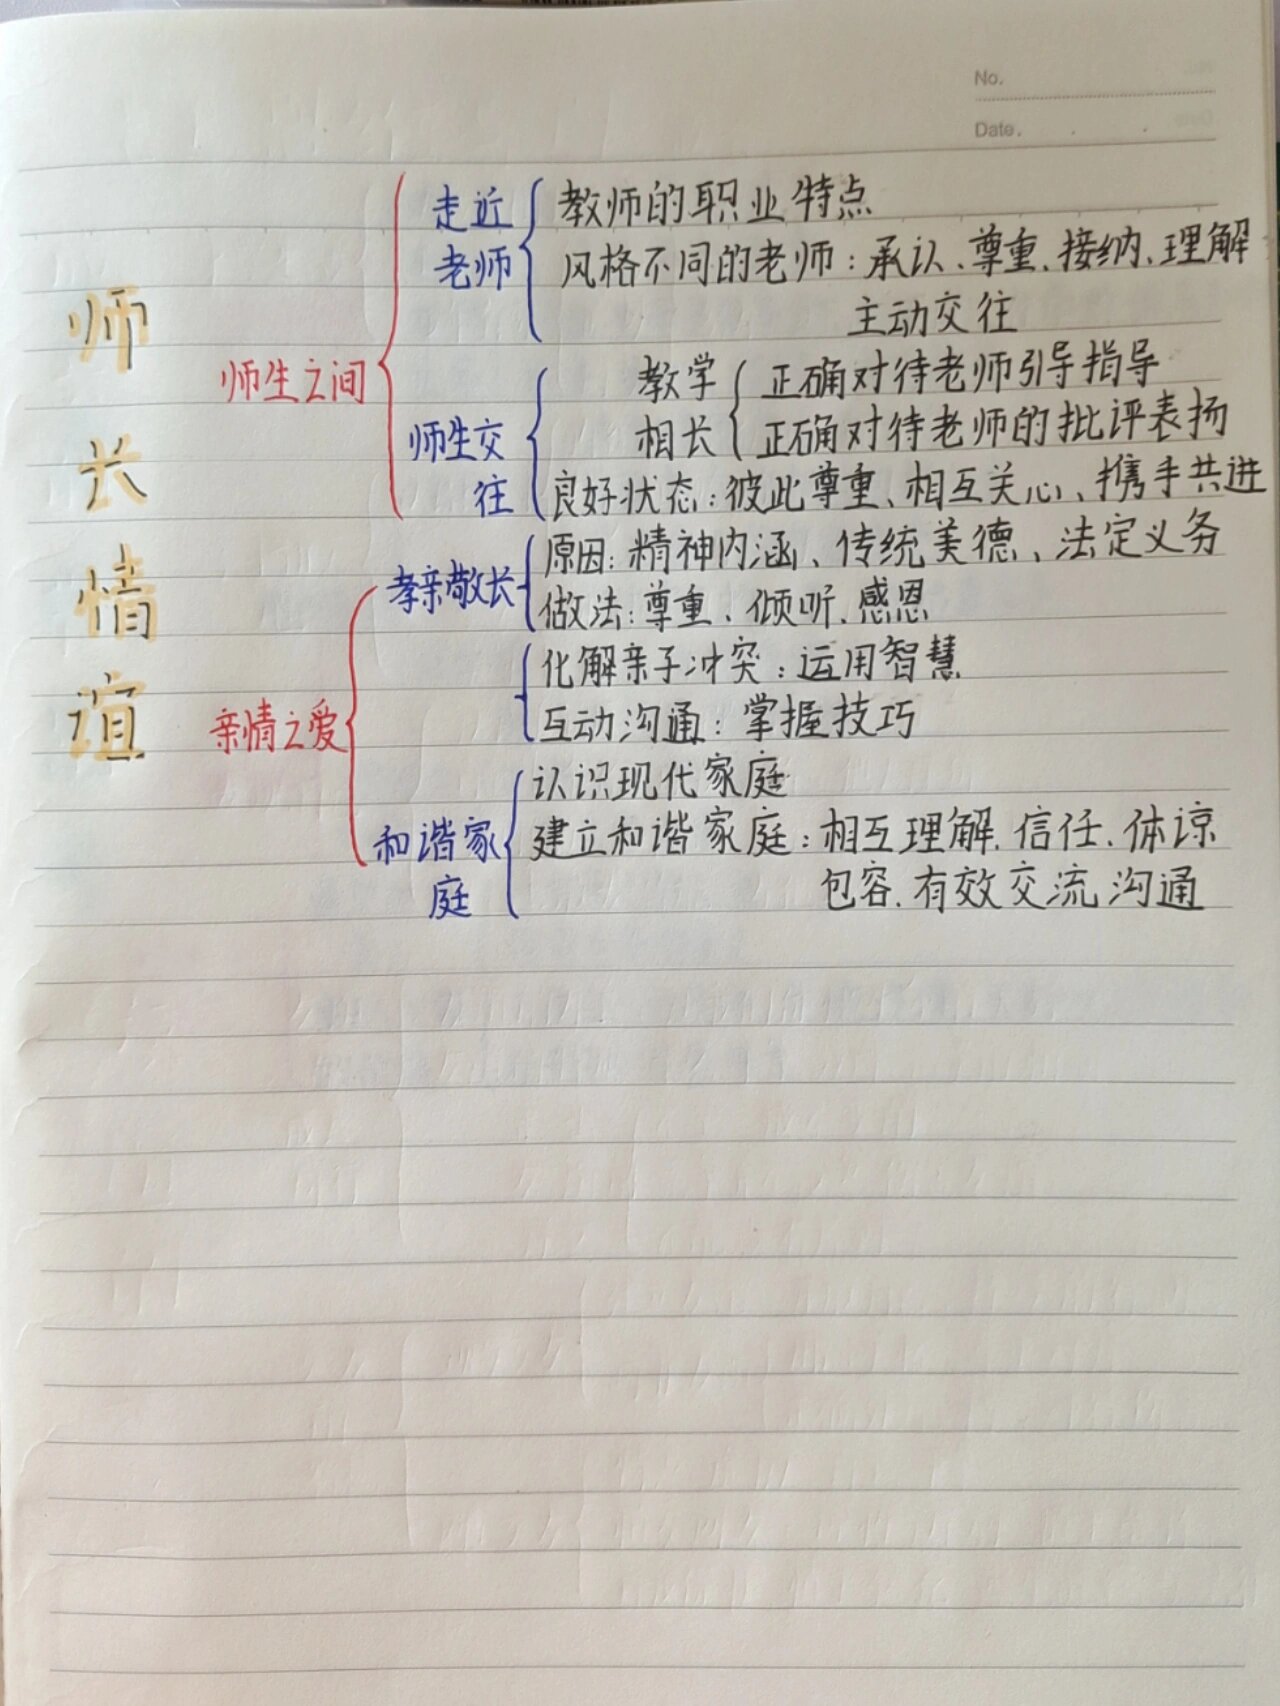 No.
Date.
师长情谊
师生之间
走近老师
教师的职业特点
风格不同的老师：承认、尊重、接纳、理解
主动交往
师生交往
教学相长
正确对待老师引导指导
正确对待老师的批评表扬
良好状态：彼此尊重、相互关心、携手共进
亲情之爱
孝亲敬长
原因：精神内涵、传统美德、法定义务
做法：尊重、倾听、感恩
化解亲子冲突：运用智慧
互动沟通：掌握技巧
和谐家庭
认识现代家庭
建立和谐家庭：相互理解.信任.体谅
包容.有效交流沟通